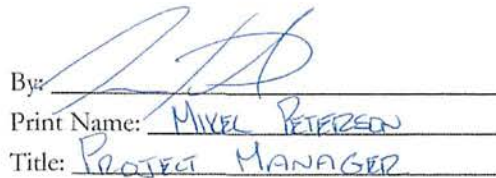 By:
Print Name: MIKEL PETERSON
Title: PROJECT MANAGER